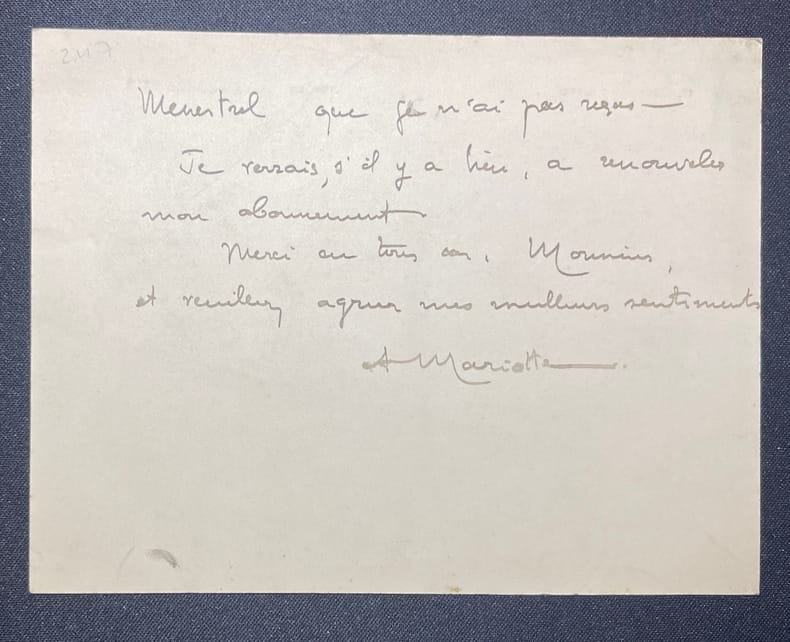 Menestrel que je n'ai pas reçus —
Je verrais, s'il y a lieu, a renouveler
mon abonnement
Merci en tous cas, Monsieur,
et veuillez agreer mes meilleurs sentiments
A Mariotte.